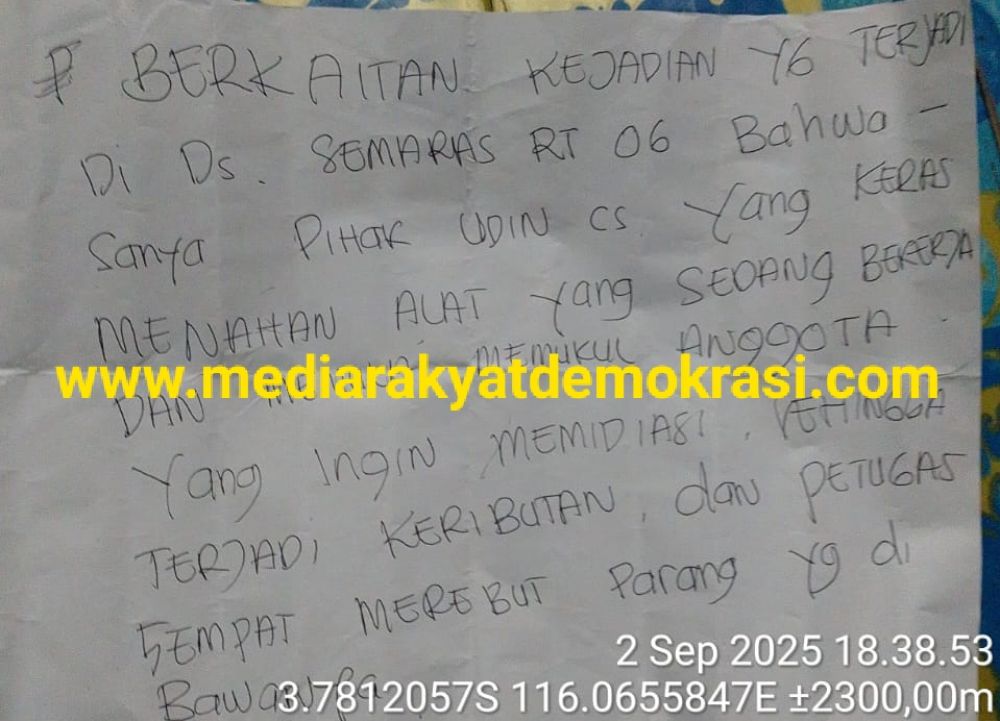 BERKAITAN KEJADIAN YG TERJADI
Di Ds. SEMARAS RT 06 Bahwa -
Sanya PiHaK UDIN CS. Yang KERAS
MENAHAN ALAT Yang SEDANG BEKERJA
DAN MEMUKUL ANGGOTA
www.mediarakyatdemokrasi.com
Yang INgiN MEMIDIASI, SEHINGGA
TERJADI KERIBUTAN, dan PETUGAS
SEMPAT MEREBUT Parang yg di
2 Sep 2025 18.38.53
Bawanya
3.7812057S 116.0655847E ±2300,00m